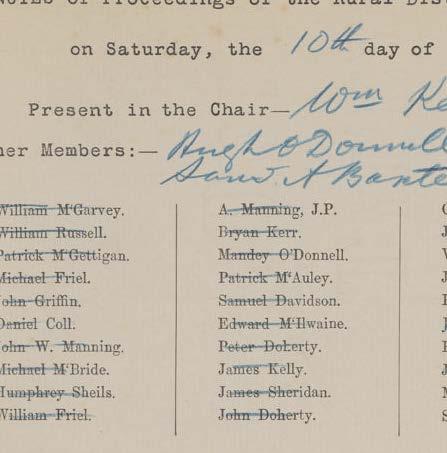 Notes of Proceedings of the Rural Dist
on Saturday, the 10th day of
Present in the Chair— Wm Ke
her Members:— Hugh O'Donnell
Saml. A Baxte
William M'Garvey.
William Russell.
Patrick M'Gettigan.
Michael Friel.
John Griffin.
Daniel Coll.
John W. Manning.
Michael M'Bride.
Humphrey Sheils.
William Friel.
A. Manning, J.P.
Bryan Kerr.
Mandey O'Donnell.
Patrick M'Auley.
Samuel Davidson.
Edward M'Ilwaine.
Peter Doherty.
James Kelly.
James Sheridan.
John Doherty.